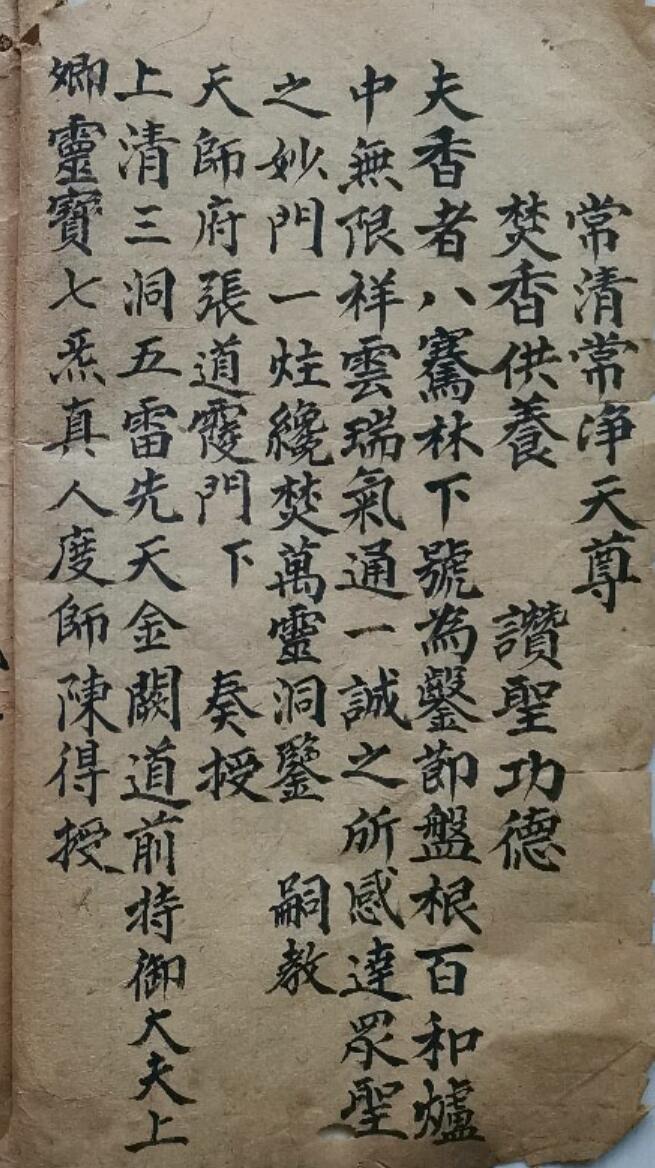 常清常淨天尊
焚香供養　讚聖功德
夫香者八騫林下號為鑿節盤根百和爐
中無限祥雲瑞氣通一誠之所感達眾聖
之妙門一炷纔焚萬靈洞鑒　嗣教
天師府張道霞門下　奏授
上清三洞五雷先天金闕道前持御大夫上
嗣靈寶七炁真人度師陳得授